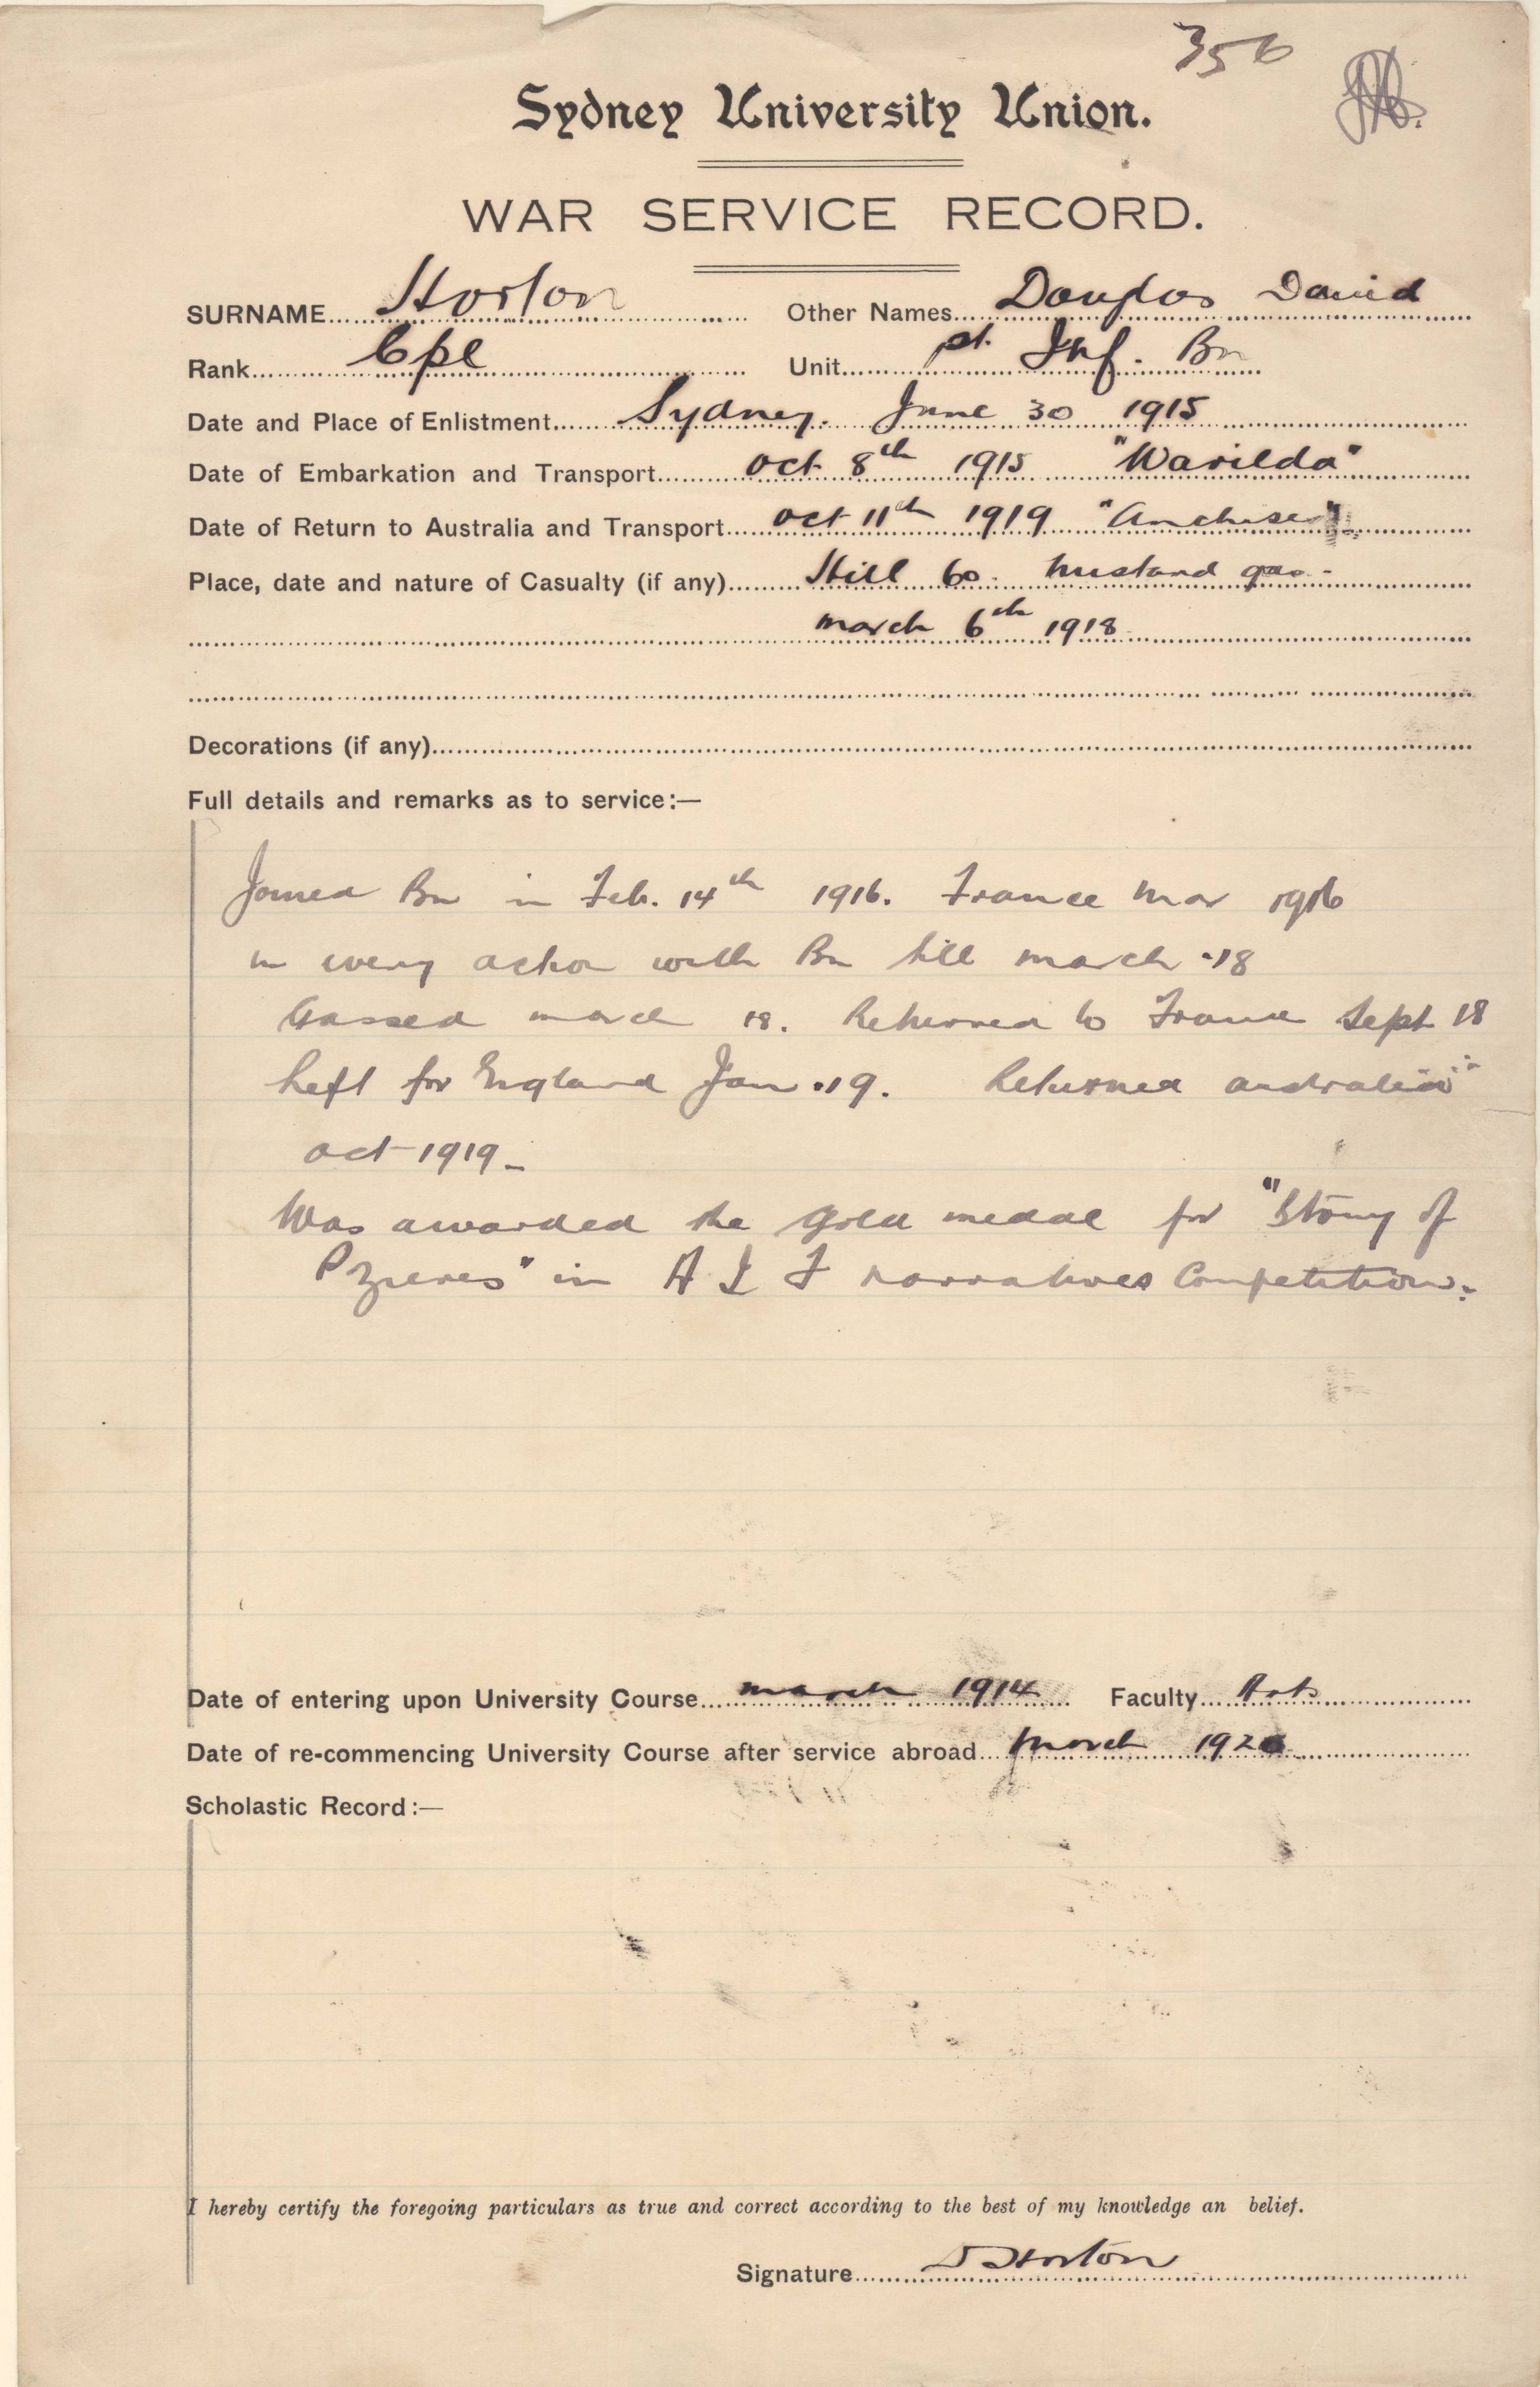 356
Sydney University Union.
WAR SERVICE RECORD.
SURNAME Horton Other Names Douglas David
Rank Cpl Unit 1st. Inf. Bn
Date and Place of Enlistment Sydney. June 30 1915
Date of Embarkation and Transport Oct 8th 1915 "Warilda"
Date of Return to Australia and Transport Oct 11th 1919 "Anchises"
Place, date and nature of Casualty (if any) Hill 60. Mustard gas -
March 6th 1918
Decorations (if any)
Full details and remarks as to service:—
Joined Bn in Feb. 14th 1916. France Mar 1916
in every action with Bn till March .18
Gassed March 18. Returned to France Sept 18
Left for England Jan .19. Returned Australia
Oct 1919 -
Was awarded the gold medal for "Story of
Pozieres" in A I F narratives Competition.
Date of entering upon University Course March 1914 Faculty Arts
Date of re-commencing University Course after service abroad March 1920
Scholastic Record:—
I hereby certify the foregoing particulars as true and correct according to the best of my knowledge an belief.
Signature D Horton